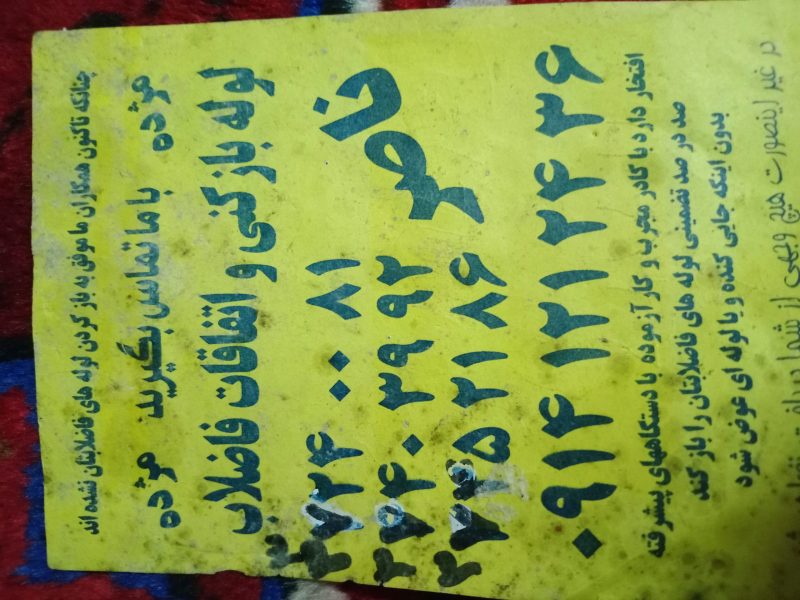 چنانکه تاکنون همکاران ما موفق به باز کردن لوله های فاضلابتان نشده اند
مژده با ما تماس بگیرید مژده
لوله بازکنی و اتفاقات فاضلاب
ناصر
۲۴ ۰۰ ۸۱
۴۰ ۳۹ ۹۲
۵ ۲۱ ۸۶
۰۹۱۴ ۱۲۱ ۲۴ ۳۶
افتخار دارد با کادر مجرب و کار آزموده با دستگاههای پیشرفته
صد در صد تضمینی لوله های فاضلابتان را باز کند
بدون اینکه جایی کنده و یا لوله ای عوض شود
در غیر اینصورت هیچ وجهی از شما دریافت